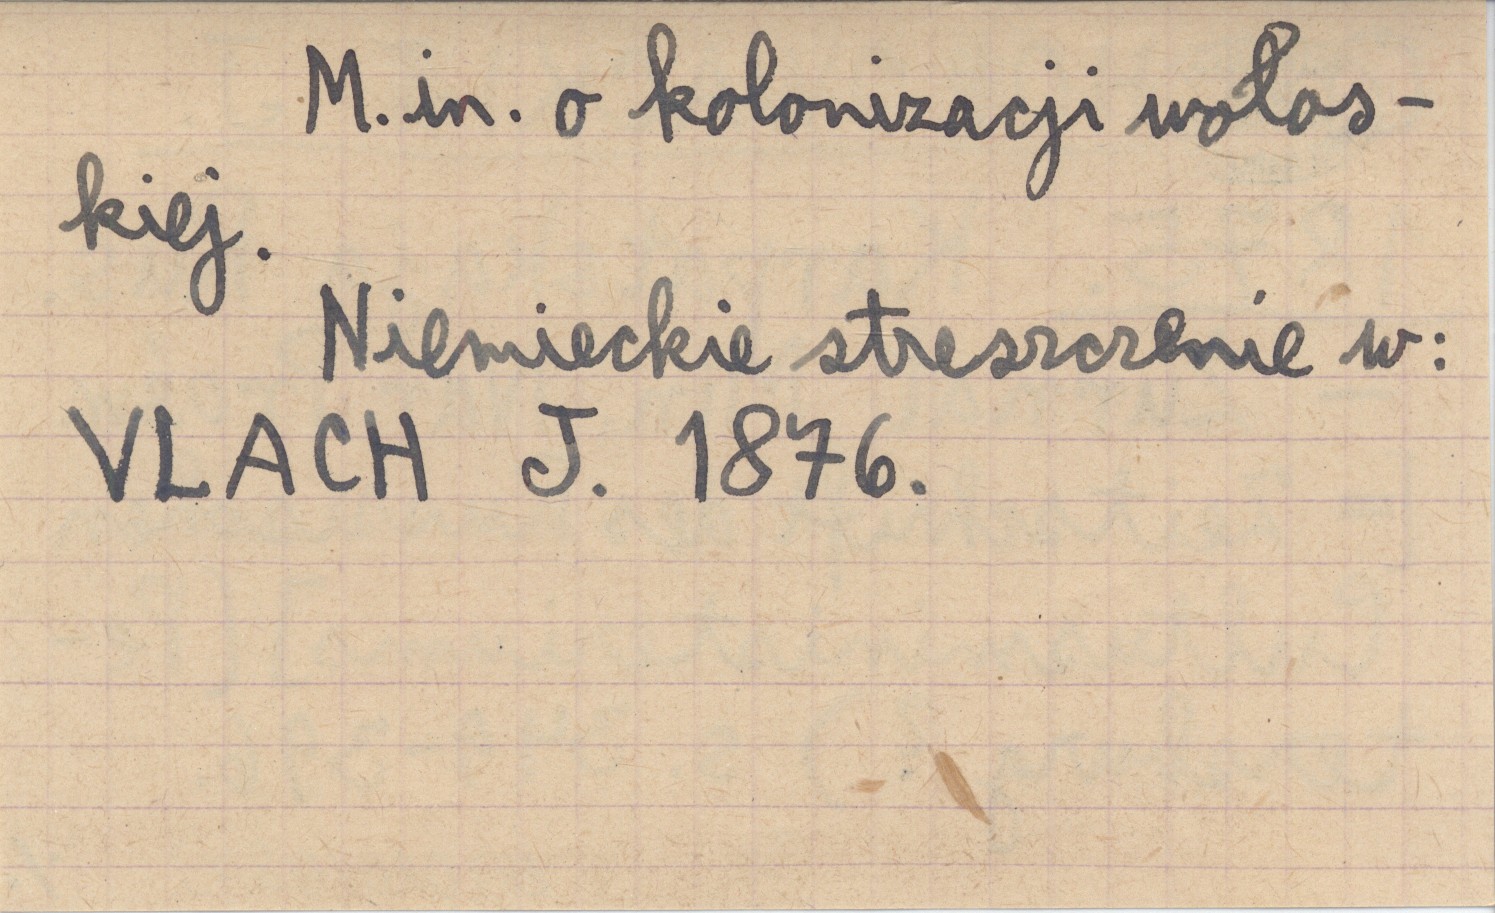 M. in. o kolonizacji wołos-
kiej.
Niemieckie streszczenie w:
VLACH J. 1876.